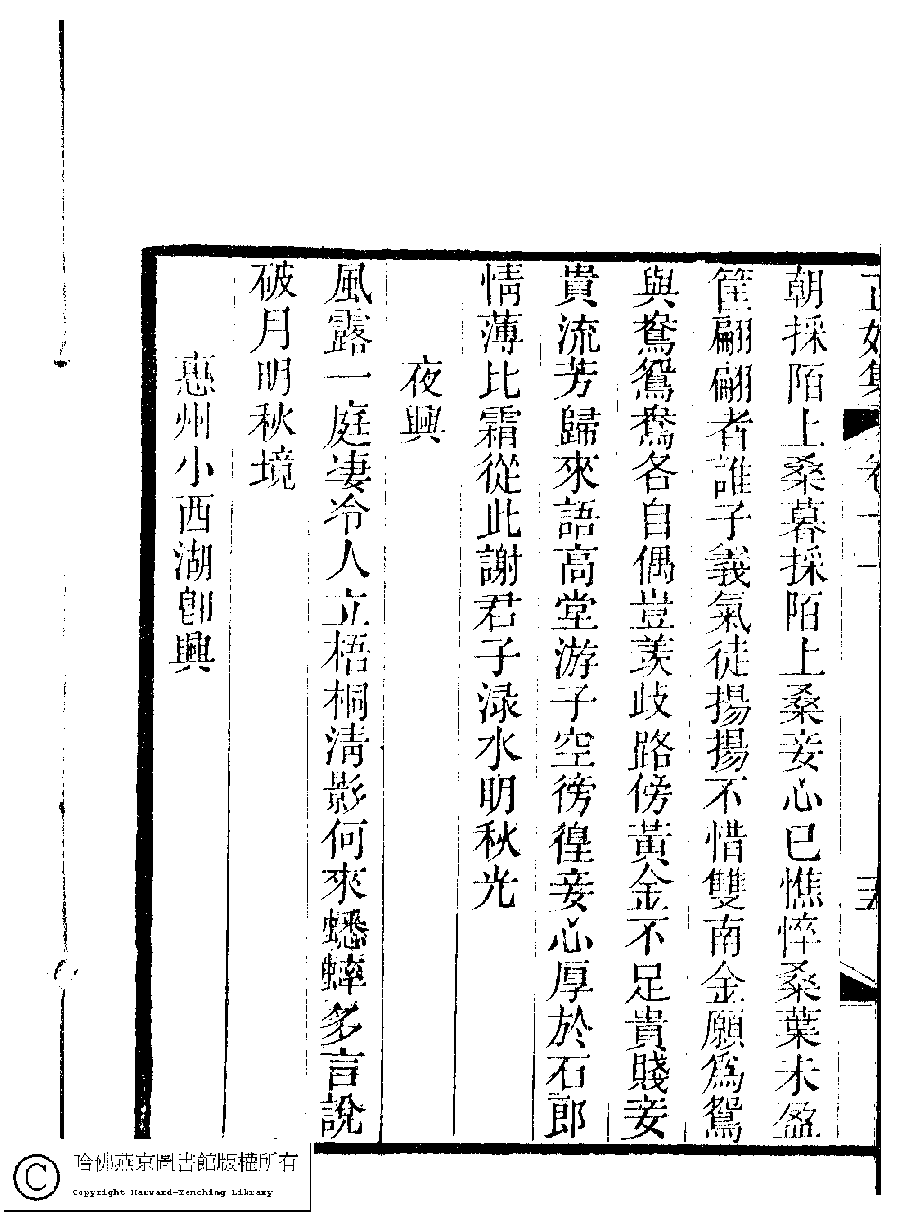 正始集 卷十一 五
朝採陌上桑暮採陌上桑妾心已憔悴桑葉未盈
筐翩翩者誰子義氣徒揚揚不惜雙南金願為鴛
與鴦鴛鴦各自偶豈羨歧路傍黃金不足貴賤妾
貴流芳歸來語高堂游子空徬徨妾心厚於石郎
情薄比霜從此謝君子淥水明秋光
夜興
風露一庭凄冷人立梧桐清影何來蟋蟀多言說
破月明秋境
惠州小西湖卽興
哈佛燕京圖書館版權所有
Copyright Harvard-Yenching Library